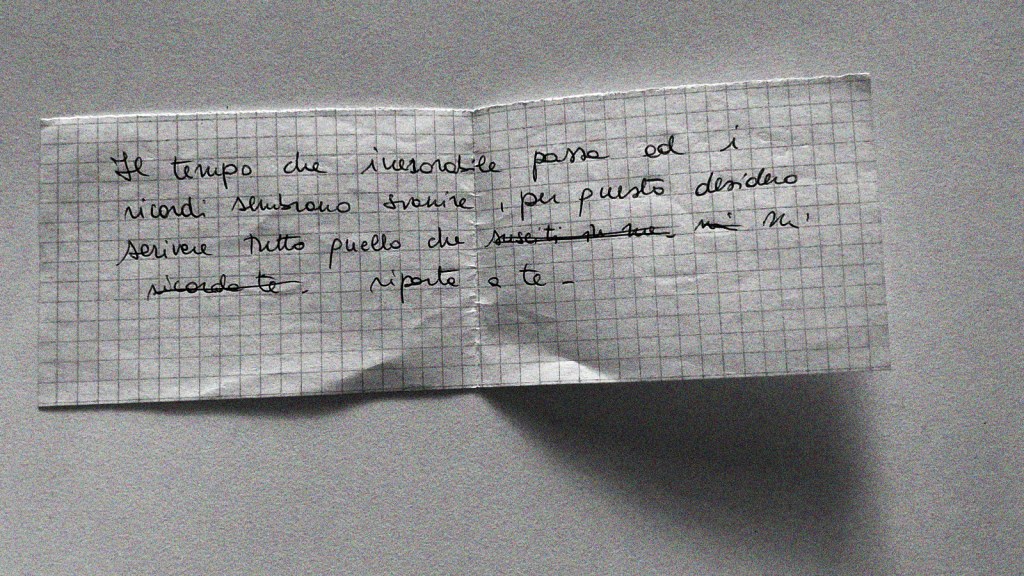 Il tempo che inesorabile passa ed i
ricordi sembrano svanire, per questo desidero
scrivere tutto quello che susciti in me mi mi
ricorda te. riporta a te -